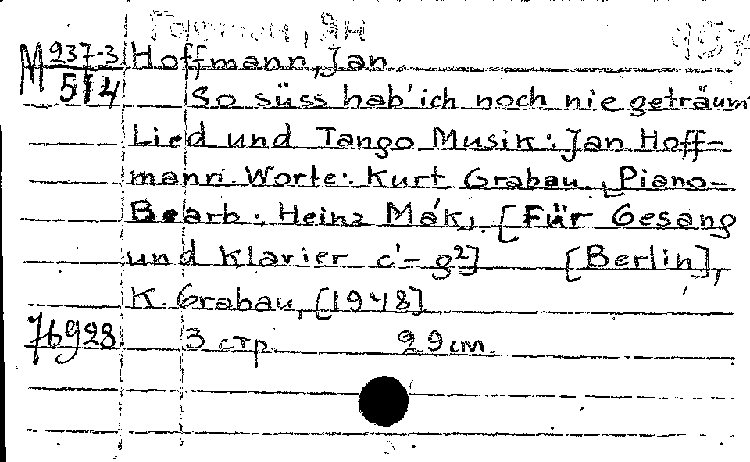 Гофман, Ян
M 937-3/514 Hoffmann, Jan
So süss hab' ich noch nie geträumt
Lied und Tango Musik: Jan Hoff-
mann. Worte: Kurt Grabau. Piano-
Bearb.: Heinz Mák, [Für Gesang
und Klavier c'-g²] [Berlin],
K. Grabau, [1948]
76928 3 стр. 29 cm.